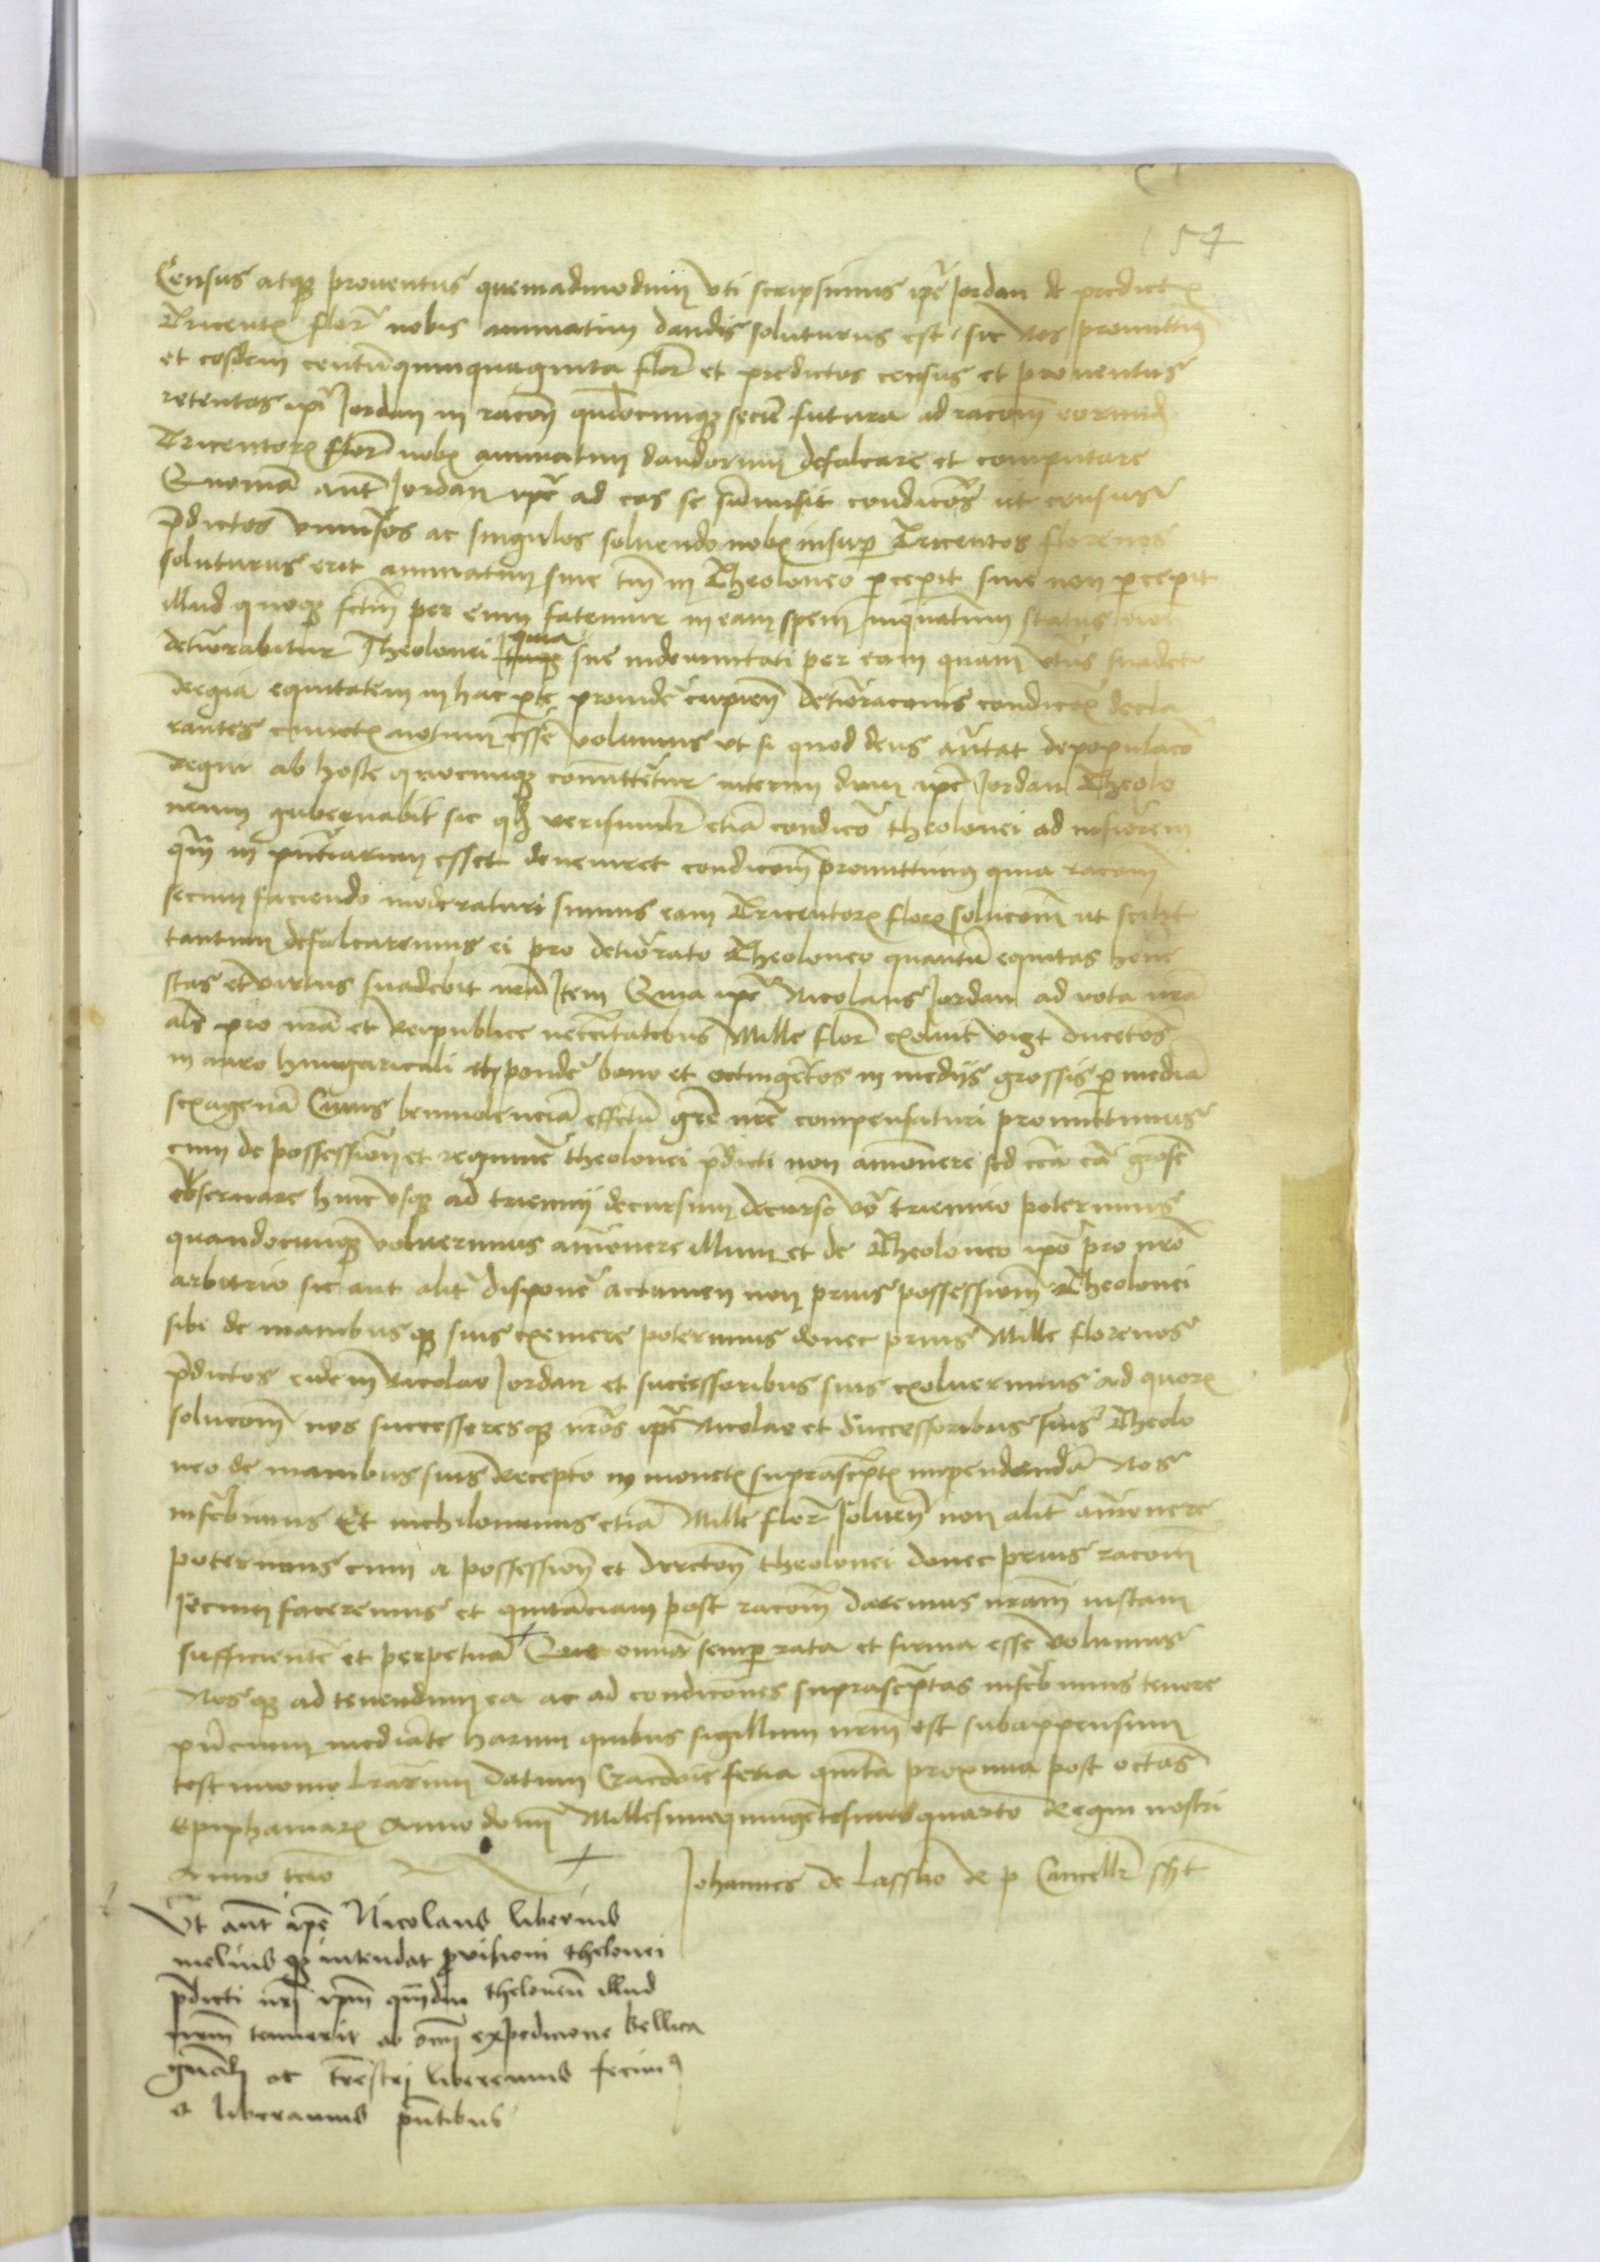 154
Census atq3 proventus quemadmodum uti scripsimus ipe Jordan de predictis
Tricentis flor nobis annuatim dandis soluturus est sic nos promittim
et eosdem centu quinquaginta flor et predictos census et proventus
retentos ipi Jordan in racon quacumq3 secu futura ad racom eorund
Tricentor flor nobis annuatim dandorum defalcare et computare
Quoniam aut Jordan ipe ad eas se summisit condicoes ut census
pdictos universos ac singulos solvendo nobis insup Tricentos florenos
soluturus erit annuatim sive tm in Theoloneo pcepit sive non pcepit
illud quoq3 per eum fatemur in eam spem inquantum status
deteriorabitur Theolonei quia sue indemnitati per eam quam
Regia equitatem in hac pte providere cupien deterioraconis condicoes decla
rantes cunctis notum esse volumus ut si quod deus avertat depopulaco
Regni ab hoste quocumq3 committeretur interim dum ipe Jordan Theolo
neum gubernabit sic q verisimilr etia condico theolonei ad inferiorem
qm in pntiarum esset deveniret condicom promittimus quia racom
secum faciendo moderaturi sumus eam Tricentor flor solucom ut scilzt
tantum defalcaremus ei pro deteriorato Theoloneo quantu equitas hone
stas et virtus suadebit nra Item Quia ipe Nicolaus Jordan ad vota nra
als pro nra et Reipublice necessitatibus Mille flor exoluit vizt ducetos
in auro hungaricali ponde bono et octingetos in medijs grossis p media
sexagena Cuius benivolencia effectu gre nre compensaturi promittimus
eum de possession et regimine theolonei pdicti non amovere sed
observare hinc usq3 ad triennij decursum Decurso vo triennio poterimus
quandocumq3 voluerimus amovere illum et de Theoloneo ipo pro nro
arbitrio sic aut alit disponere actamen non prius possessiom Theolonei
sibi de manibusq3 suis eximere poterimus donec prius Mille florenos
pdictos eidem Nicolao Jordan et successoribus suis exoluerimus ad quor
solucom nos successoresq3 nros ipi Nicolao et Successoribus suis Theolo
neo de manibus suis Recepto in monetis suprascptis impendenda Nos
inscribimus Et nichilominus etia Mille flor soluen non alit amovere
poterimus eum a possession et theolonei donec prius racom
secum faceremus et quitanciam post racom daremus nram iustam
sufficiente et perpetua Que omia semp rata et firma esse volumus
Nosq3 ad tenendum ea ac ad condicoes suprascptas inscribimus tenere
mediate harum quibus sigillum nrm est subappensum
testimonio lrarum Datum Cracovie feria quinta proxima post octas
Epiphaniar Anno domi Millesimoquingetesimoquarto Regni nostri
Anno tcio Johannes de Lassko R p Cancellr sst
Ut aut ipe Nicolaus liberius
meliusq3 intendat provisioni thelonei
pdicti nri ipm qmdiu theloneu illud
nrm tenuerit ab omi expedicione bellica
gnali ac trestrj liberemus fecim9
et liberamus pntibus